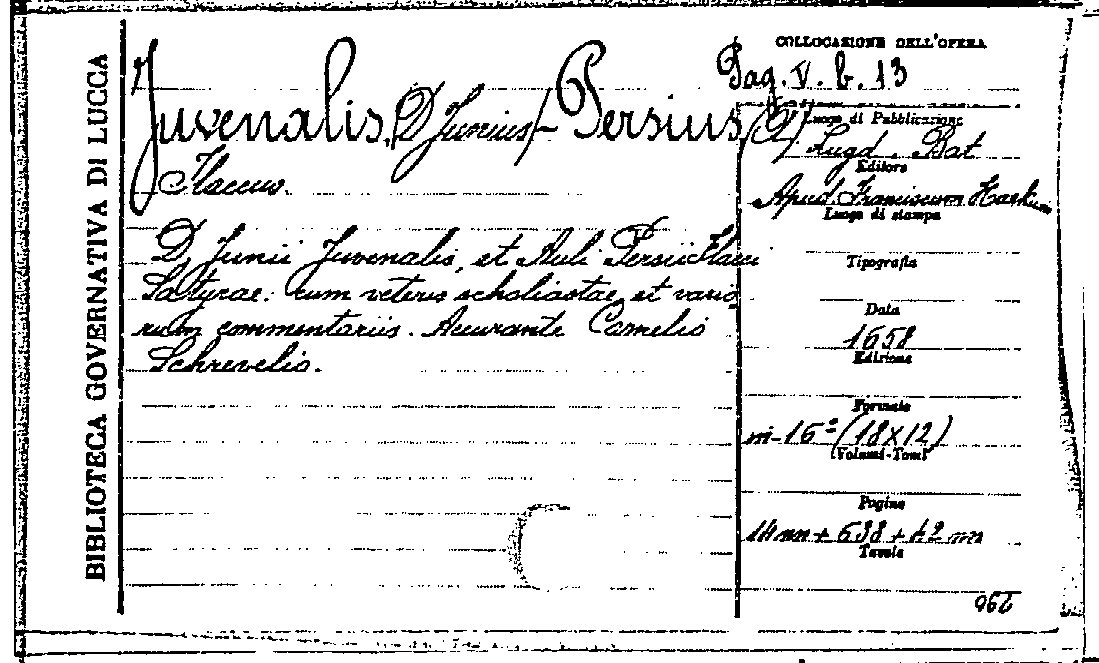 BIBLIOTECA GOVERNATIVA DI LUCCA
COLLOCAZIONE DELL'OPERA
Pag. V. b. 13
Juvenalis, (D Junius) - Persius
Flaccus.
D Junii Juvenalis, et Auli Persii Flacci
Satyrae: cum veteris scholiastae et vario
rum commentariis. Accurante Cornelio
Schrevelio.
Luogo di Pubblicazione
Lugd. Bat
Editore
Apud Franciscum Hackum
Luogo di stampa
Tipografia
Data
1658
Edizione
Formato
in-16º (18x12)
(Volumi-Tomi)
Pagine
14 nn + 638 + 42 nn
Tavole